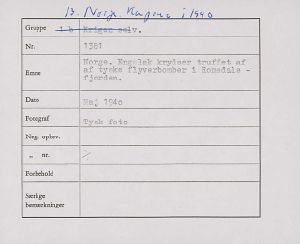 13. Norge. Krigen i 1940
Gruppe 1 b Krigen selv.
Nr. 1381
Emne Norge. Engelsk krydser truffet af
af tyske flyverbomber i Romsdals-
fjorden.
Dato Maj 1940
Fotograf Tysk foto
Neg. opbev.
„ nr.
Forbehold
Særlige
bemærkninger